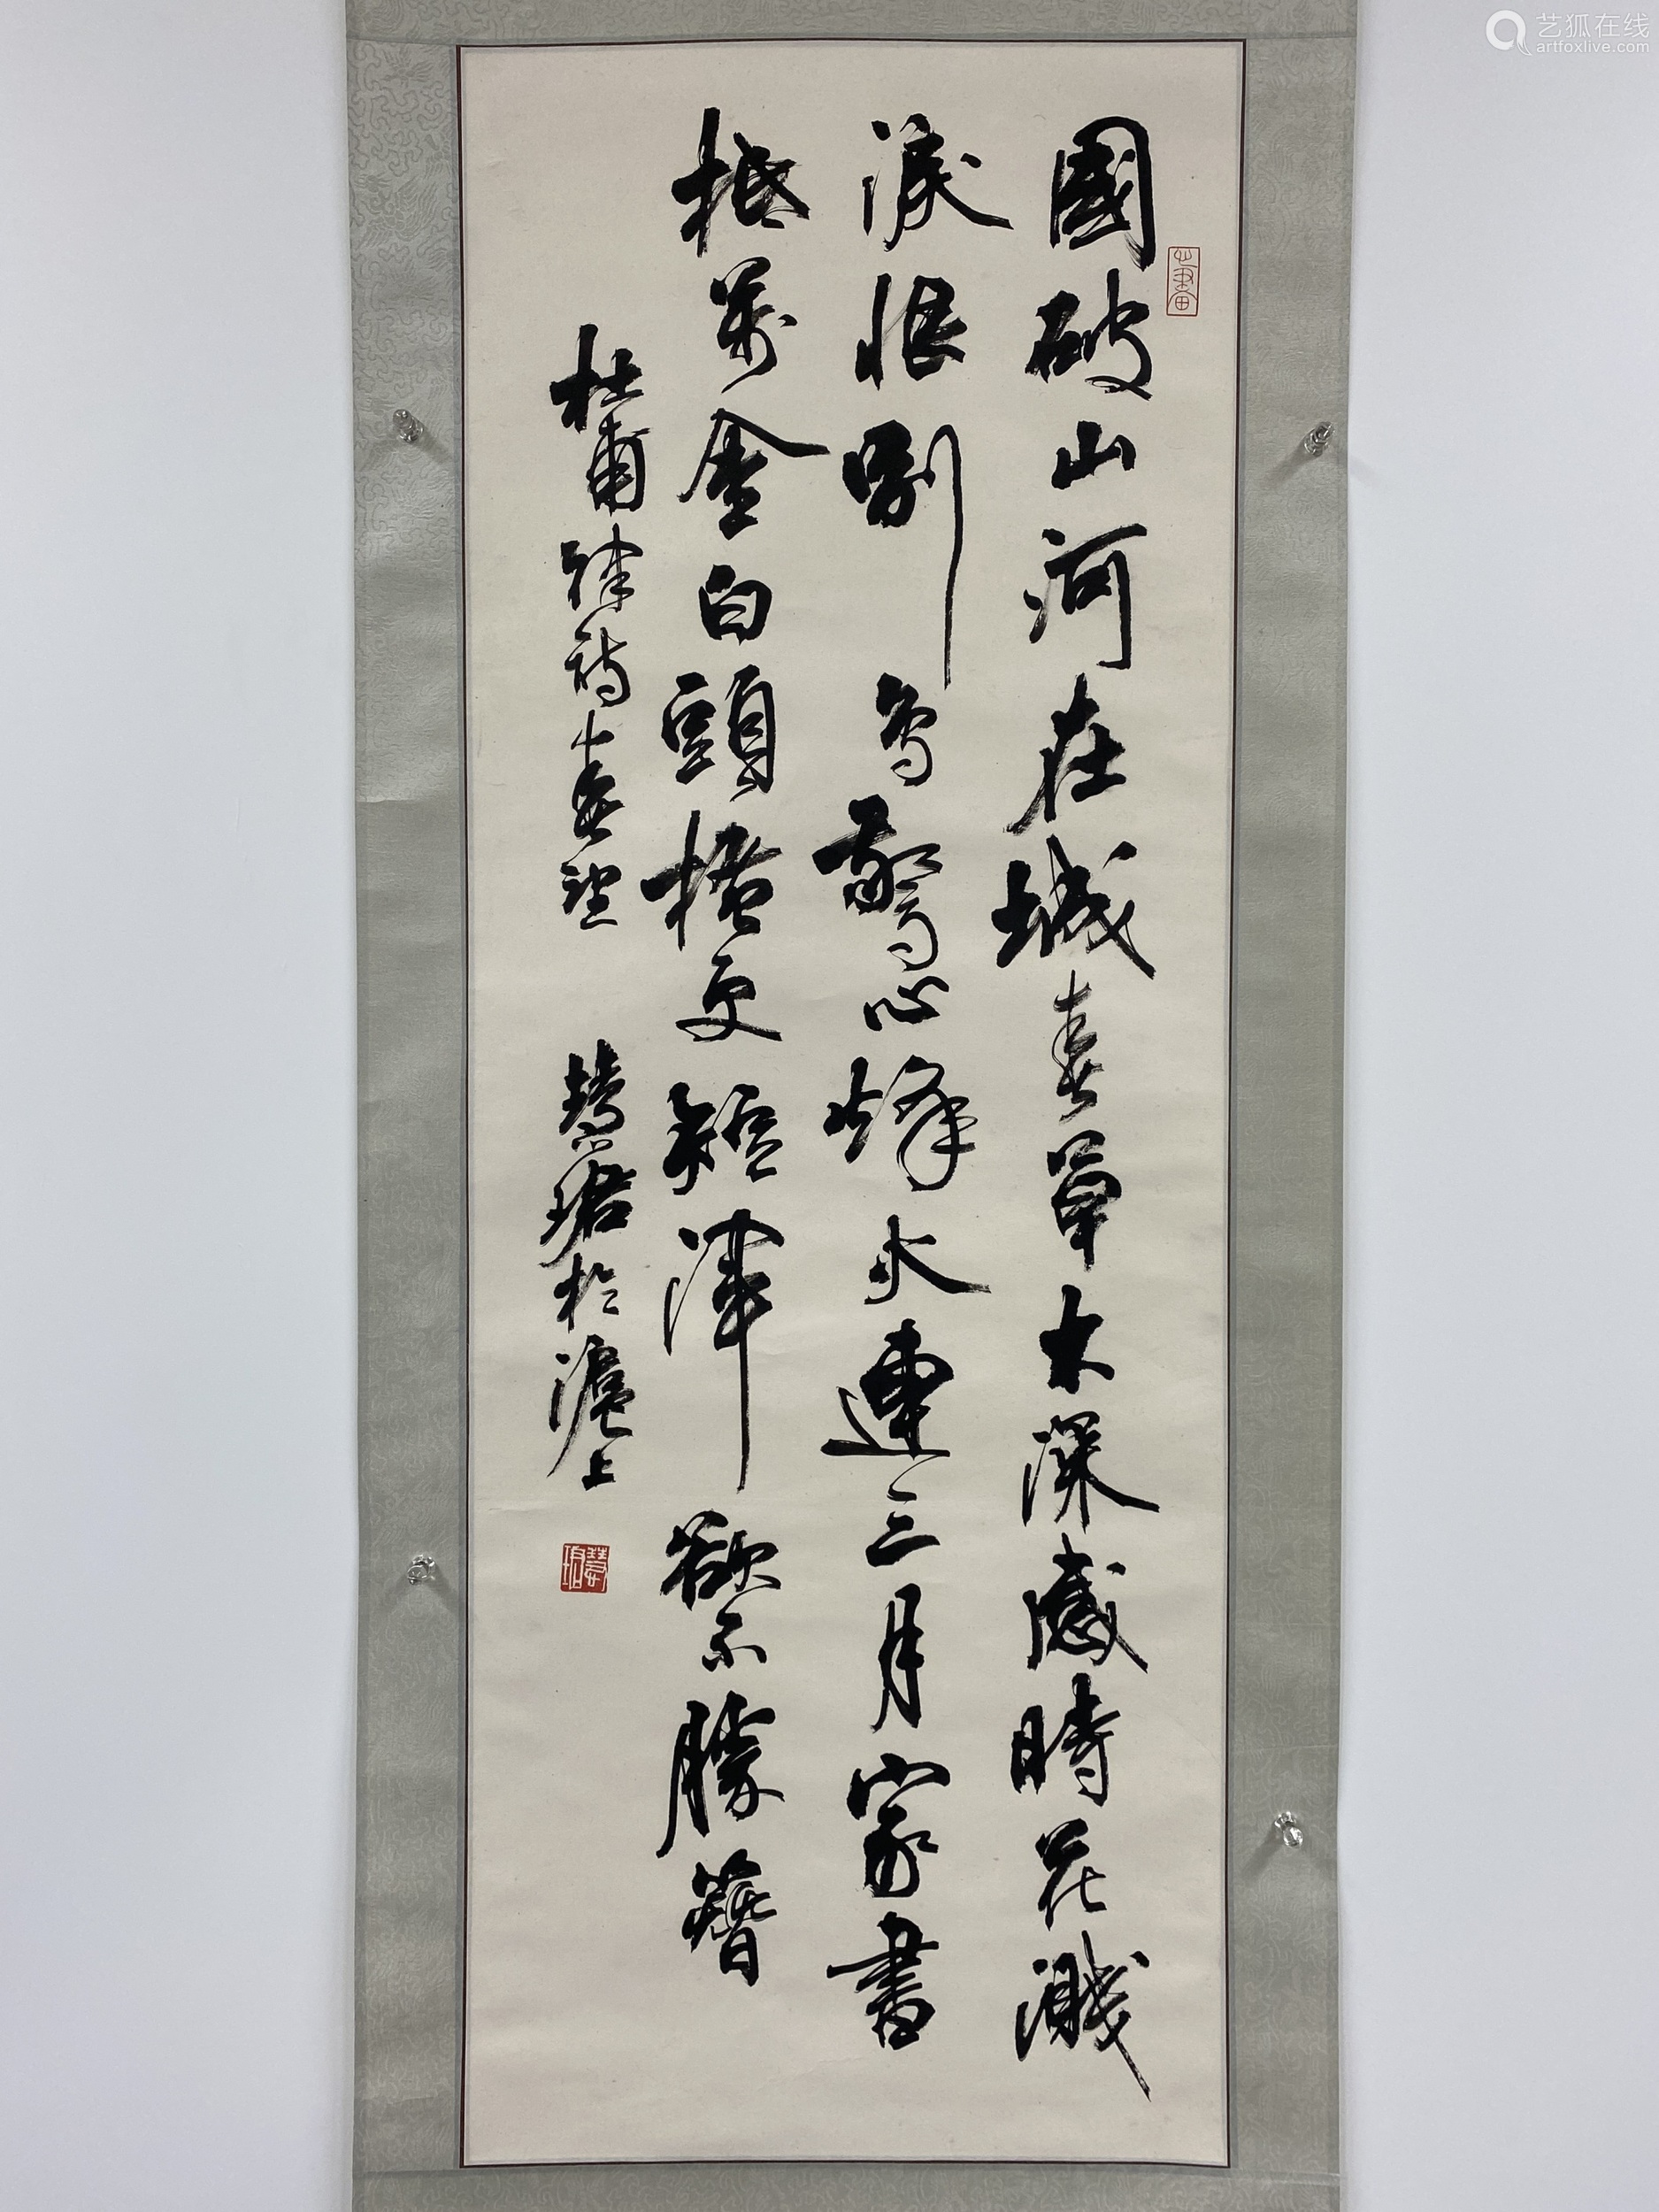 艺狐在线
artfoxlive.com
國破山河在城春草木深感時花濺
淚恨別鳥驚心烽火連三月家書
抵萬金白頭搔更短渾欲不勝簪
杜甫律詩春望 慧珺於滬上
慧珺